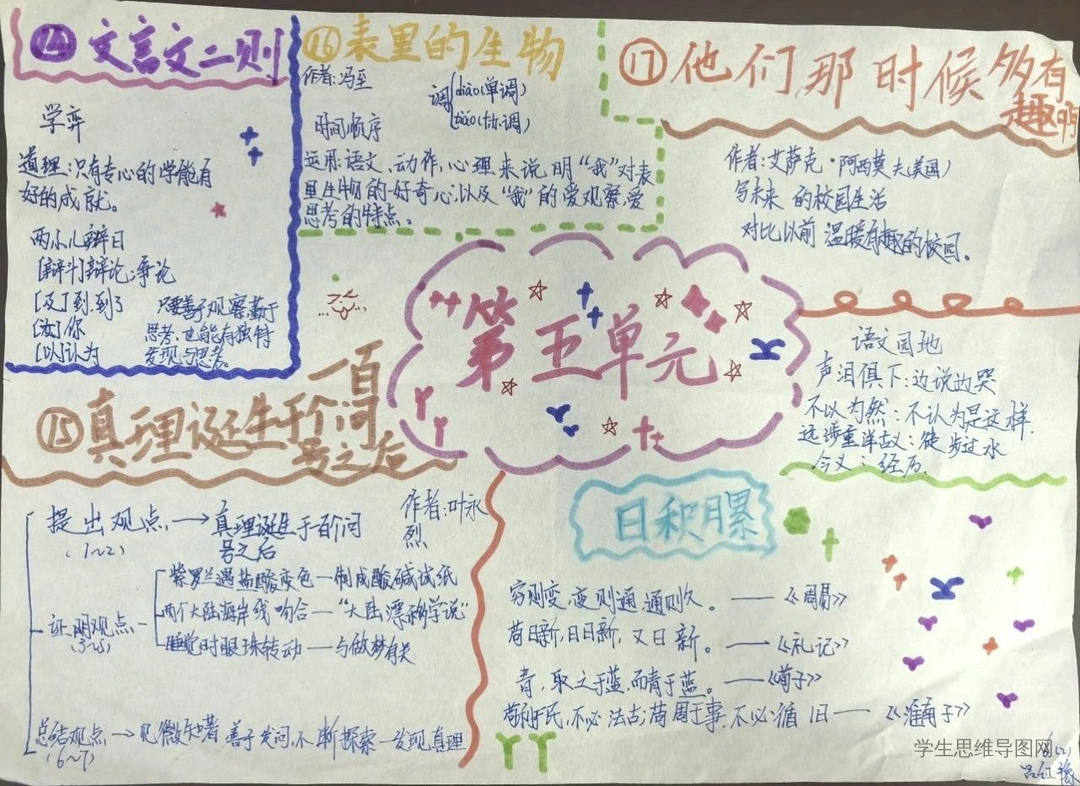 ⑭文言文二则
学弈
道理:只有专心的学能有
好的成就。
两小儿辩日
[辩斗]辩论,争论
[及]到,到了
[汝]你
[以]认为
只要善于观察勤于
思考,也能有独特
发现与思考。
⑯表里的生物
作者:冯至
调(diào(单调)
tiáo(协调)
时间顺序
运用语文、动作,心理来说明“我”对表
里生物的好奇心,以及“我”的爱观察,爱
思考的特点。
⑰他们那时候多有
趣啊
作者:艾萨克·阿西莫夫(美国)
写未来的校园生活
对比以前温暖有趣的校园。
第五单元
语文园地
声泪俱下:边说边哭
不以为然:不认为是这样
远涉重洋古义:徒步过水
今义:经历.
⑮真理诞生于一百个问
号之后
作者:叶永
烈
提出观点→真理诞生于百个问
号之后
(1~2)
证明观点
紫罗兰遇盐酸变色—制成酸碱试纸
两个大陆海岸线吻合—“大陆漂移学说”
睡觉时眼珠转动—与做梦有关
总结观点→见微知著善于发问,不断探索—发现真理
(6~7)
日积月累
穷则变,变则通,通则久。——《周易》
苟日新,日日新,又日新。——《礼记》
青,取之于蓝,而青于蓝。——《荀子》
苟利于民,不必法古;苟周于事,不必循旧——《淮南子》
学生思维导图网